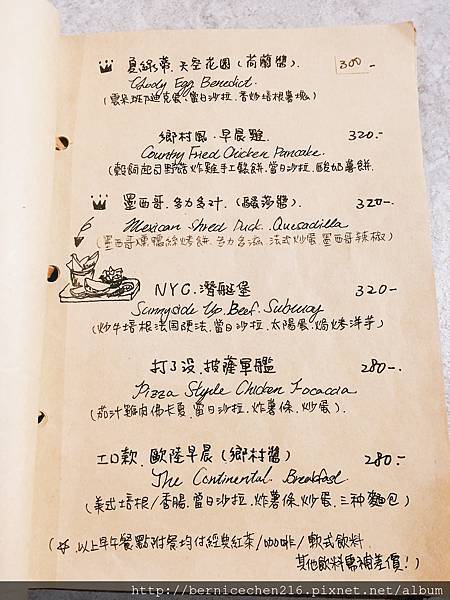 夏綠蒂.天空花園(荷蘭醬). 300-
Cloudy Egg Benedict.
(雲朵班乃迪克蛋.當日沙拉.香炒培根薯塊)
鄉村風.早晨雞. 320-
Country Fried Chicken Pancake.
(穀飼起司野菇炸雞手工鬆餅.當日沙拉.酸奶薯餅.
墨西哥.多力多汁.(騷莎醬). 320-
Mexican Shred Duck. Quesadilla
(墨西哥燻鴨絲烤餅.多力多滋.法式炒蛋.墨西哥辣椒)
NYC.潛艇堡 320-
Sunnyside Up. Beef. Subway
(炒牛培根法國硬法.當日沙拉.太陽蛋.焗烤洋芋)
打了沒.披薩軍艦 280-
Pizza Style Chicken Focaccia
(茄汁雞肉佛卡夏.當日沙拉.炸薯條.炒蛋).
工口款.歐陸早晨(鄉村醬) 280-
The Continental. Breakfast
(美式培根/香腸.當日沙拉.炸薯條.炒蛋.三种麵包)
(以上早午餐點附餐均付經典紅茶/咖啡/軟式飲料.
其他飲料需補差價!)
http://bernicechen216.pixnet.net/album